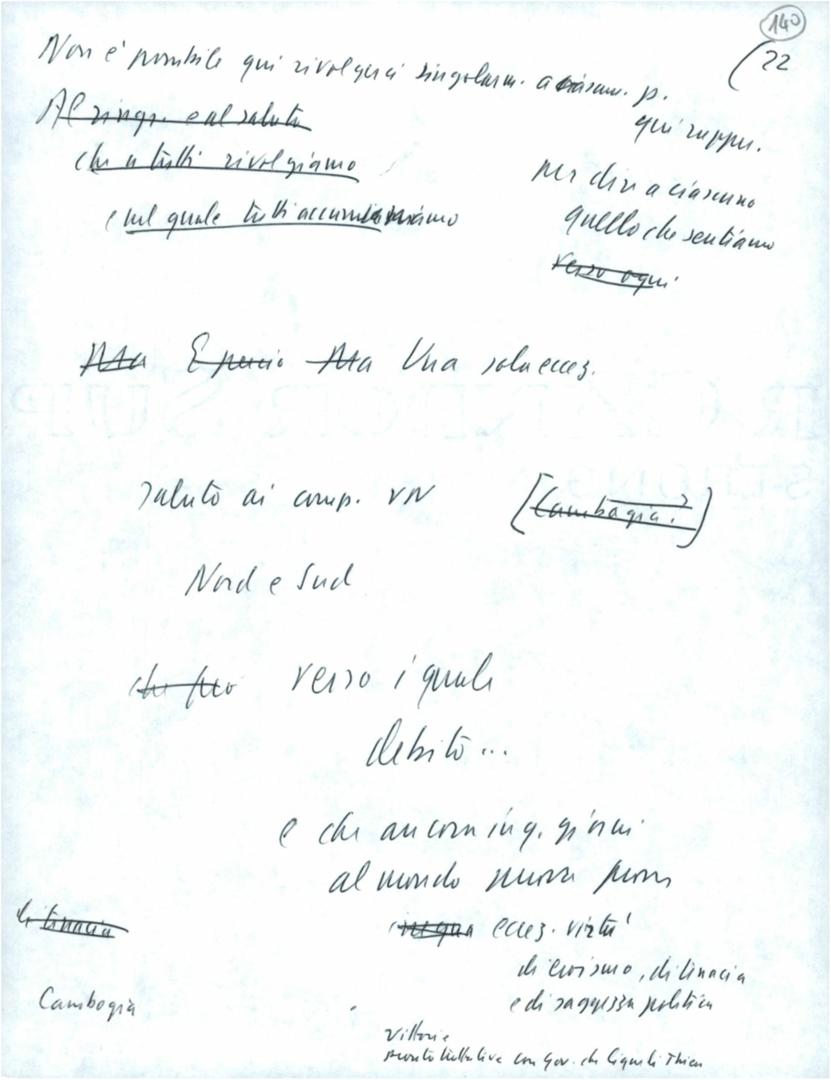 140
22
Non è possibile qui rivolgerci singolarm. a ciascun. p.
qui rappr.
Al ringr. e al saluto
che a tutti rivolgiamo
e nel quale tutti accomuniamo
per dire a ciascuno
quello che sentiamo
verso ogni
Ma E perciò Ma Una sola eccez.
saluto ai comp. VN [Cambogia?]
Nord e Sud
che fro verso i quali
debito...
e che ancora in q. giorni
al mondo nuova prova
di tenacia
eccez. virtù
di eroismo, di tenacia
e di saggezza politica
Cambogia
Vittorie
pronto trattative con gov. che liquidi Thieu